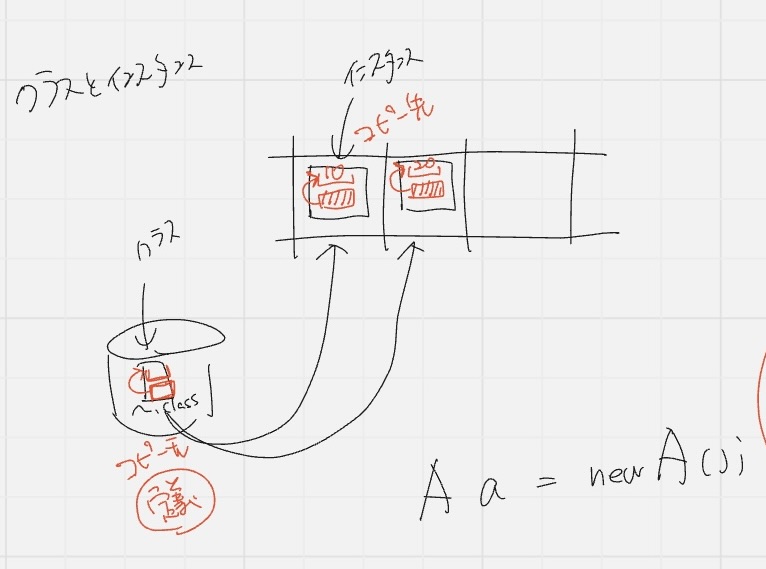 クラスとインスタンス
インスタンス
コピー先
10
20
クラス
~.class
コピー元
定義
A a = new A();